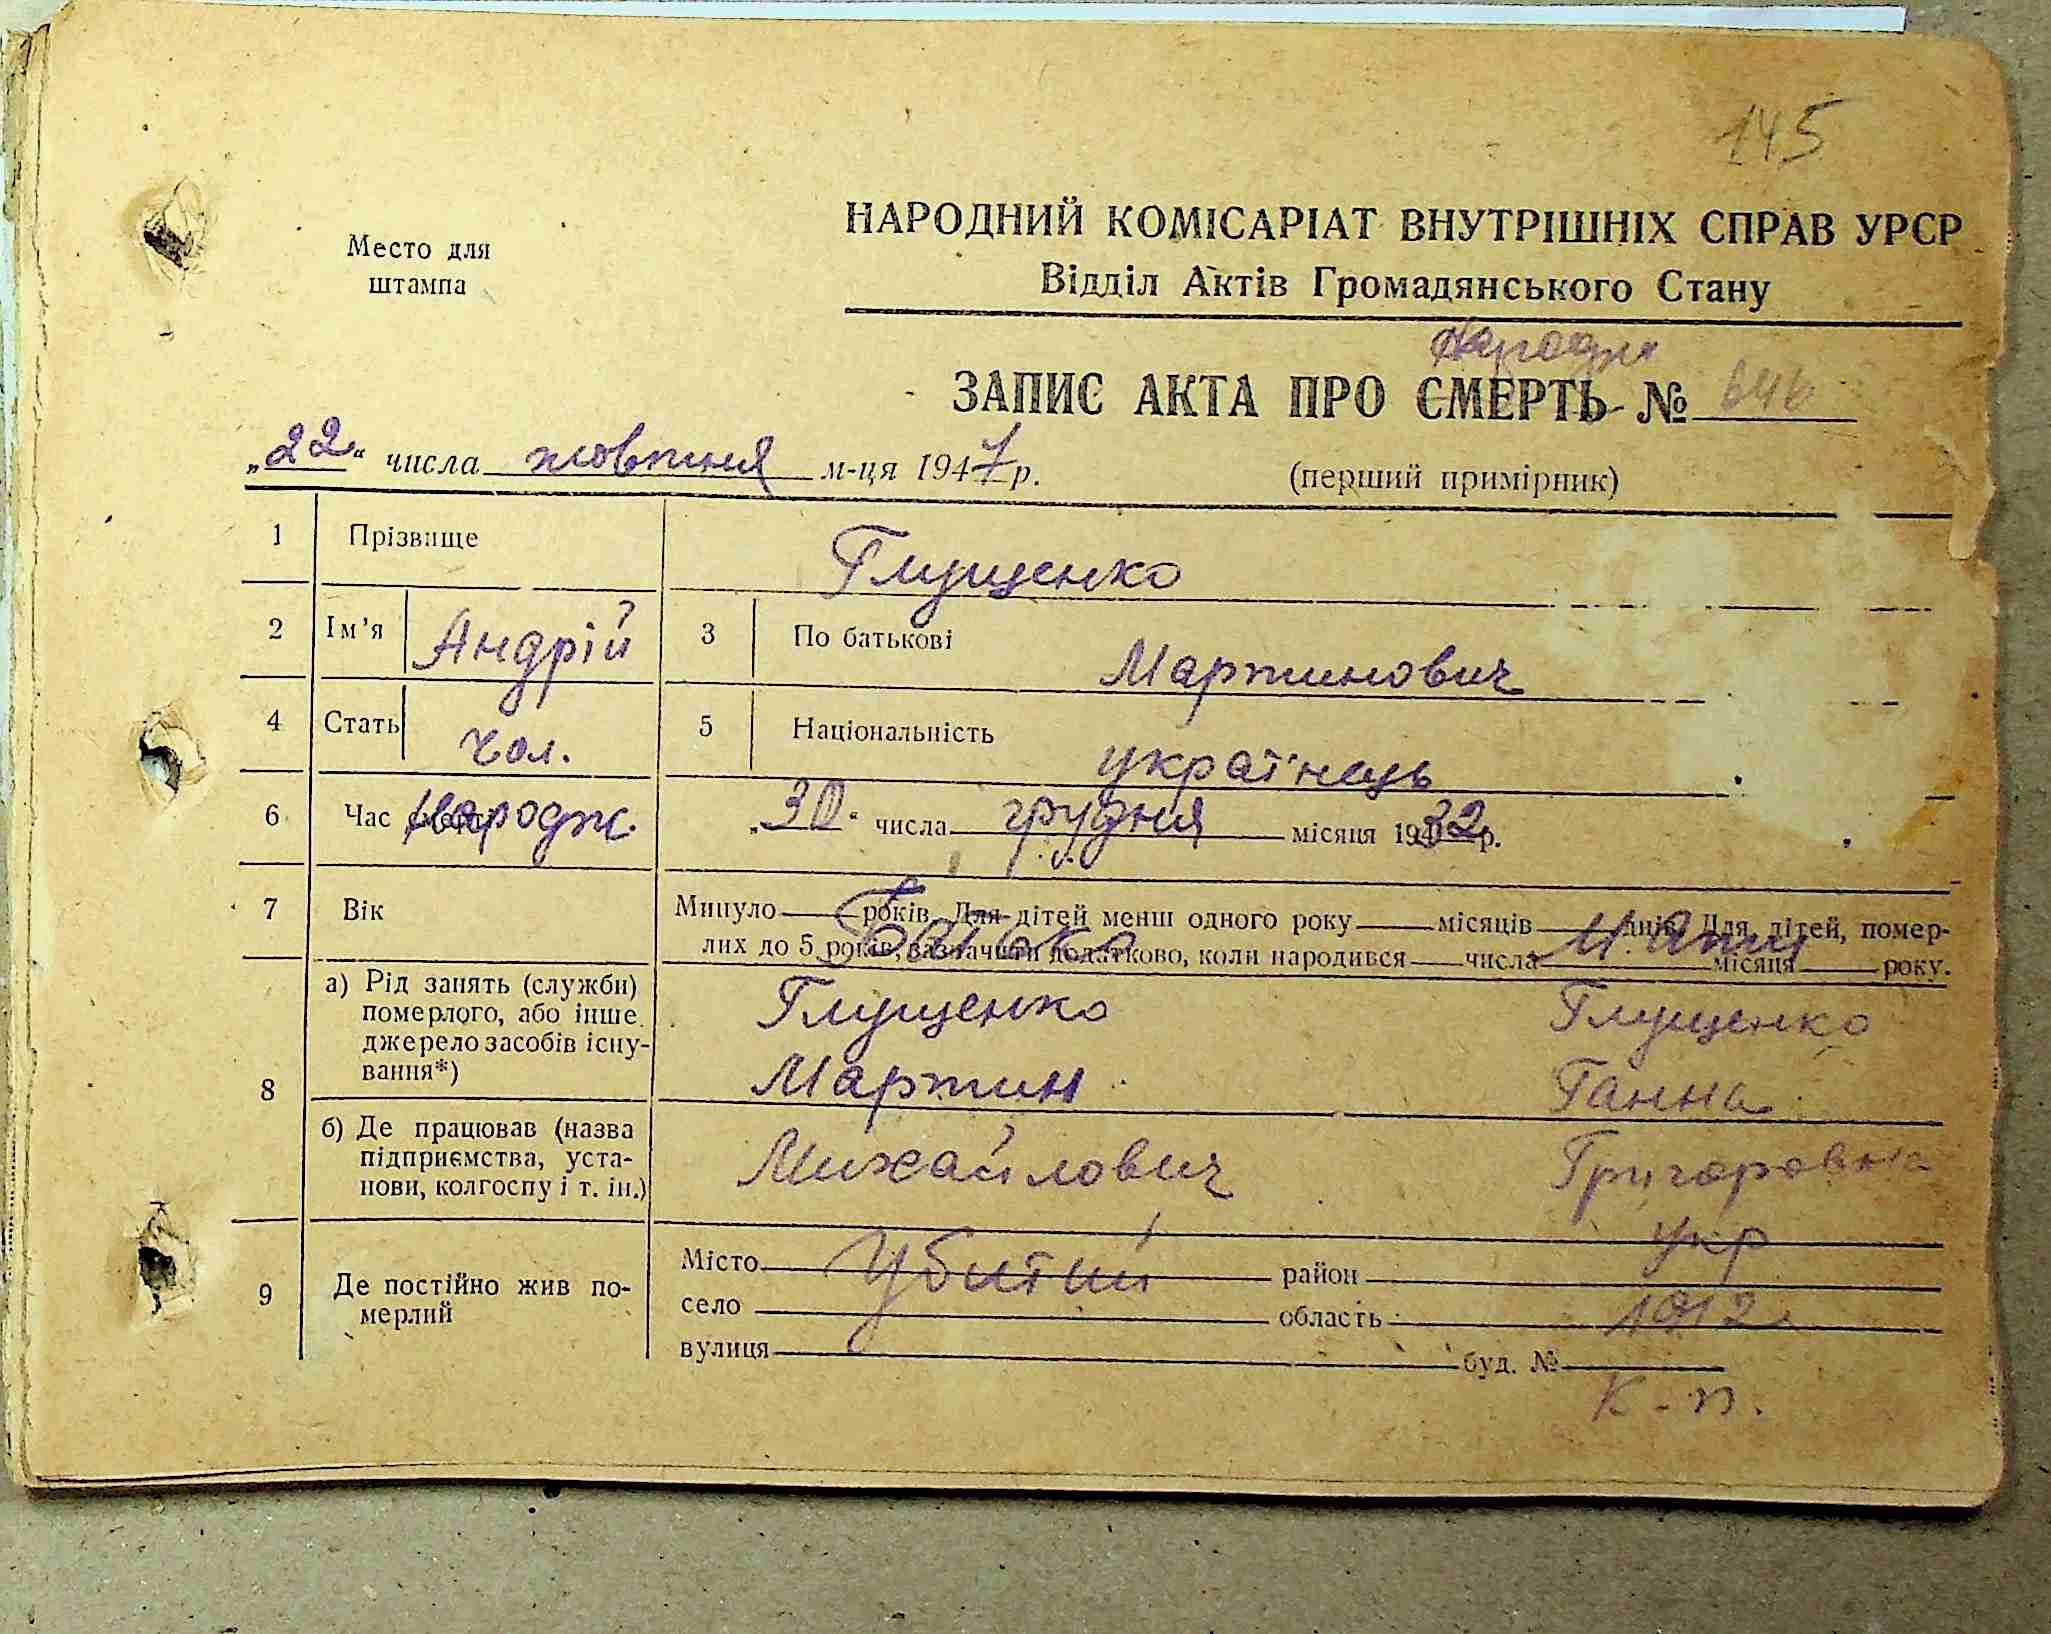 145
Место для
штампа
НАРОДНИЙ КОМІСАРІАТ ВНУТРІШНІХ СПРАВ УРСР
Відділ Актів Громадянського Стану
ЗАПИС АКТА ПРО СМЕРТЬ №
„22“ числа жовтня м-ця 1947 р.
(перший примірник)
1 Прізвище Глущенко
2 Ім’я Андрій 3 По батькові Мартинович
4 Стать Чол. 5 Національність українець
6 Час народж. „30“ числа грудня місяця 1932 р.
7 Вік Минуло років. Для дітей менш одного року місяців днів. Для дітей, помер-
лих до 5 років, зазначити додатково, коли народився числа місяця року.
Батько Мати
8 а) Рід занять (служби)
померлого, або інше
джерело засобів існу-
вання*)
Глущенко Глущенко
Мартин Ганна
б) Де працював (назва
підприємства, уста-
нови, колгоспу і т. ін.)
Михайлович Григоровна
укр
9 Де постійно жив по-
мерлий
Місто Убитий район
село область 1912
вулиця буд. №
К-п.